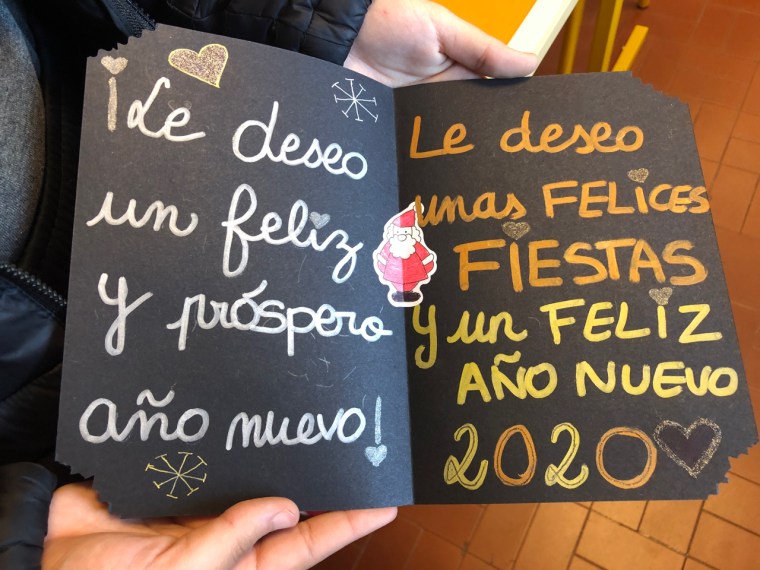 ¡Le deseo
un feliz
y próspero
año nuevo!
Le deseo
unas FELICES
FIESTAS
y un FELIZ
AÑO NUEVO
2020